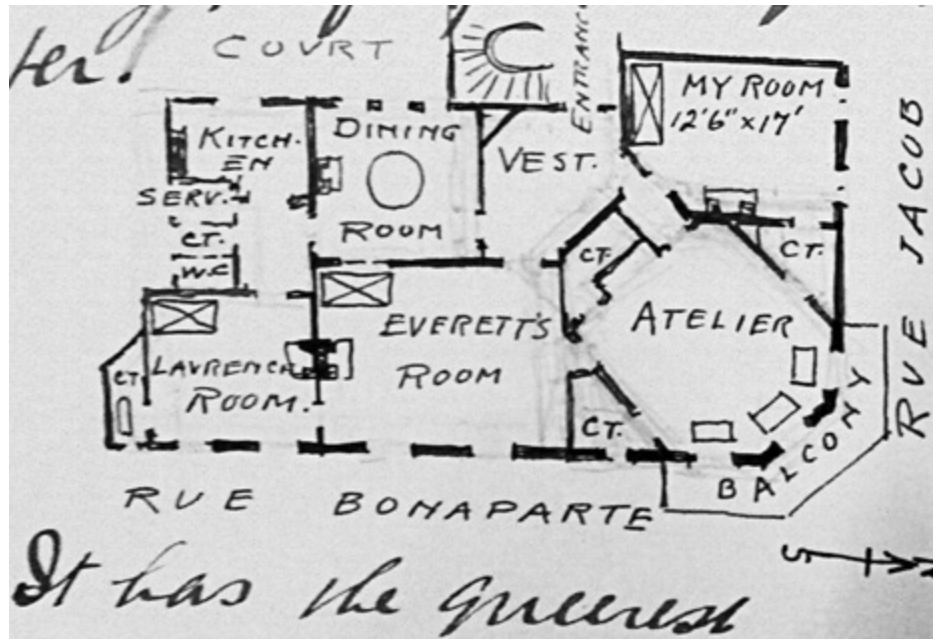 ter.
COURT
ENTRANC
MY ROOM
12'6" x 17'
KITCH-
EN
DINING
ROOM
VEST.
SERV.
CT.
W.C
CT.
CT.
RUE JACOB
EVERETT'S
ROOM
ATELIER
LAWRENCE
ROOM.
CT.
CT.
BALCONY
RUE BONAPARTE
S
N
It has the queerest